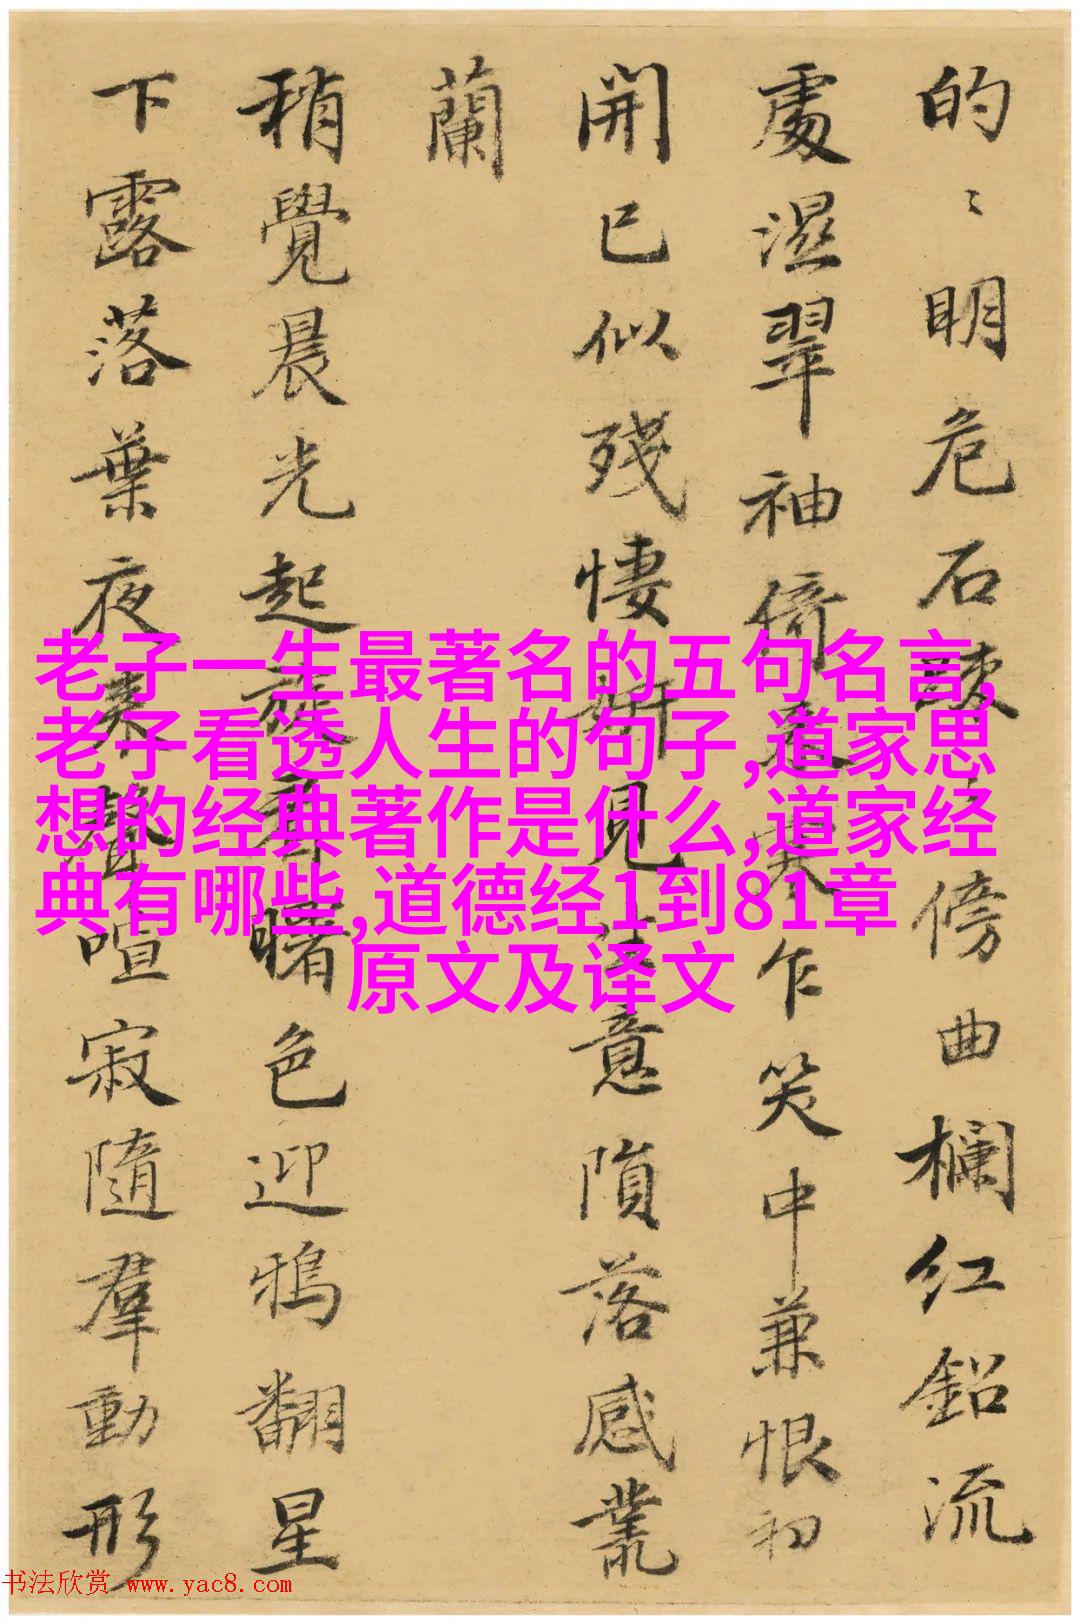 的〻明危石〻傍曲欄红鉛流
處濕翠袖倚寒乍笑中兼恨初
開已似殘悽妍見生意隕落感叢
蘭
稍覺晨光起看曙色迎鴉翻星
下露落葉夜來聲喧寂隨羣動形
老子一生最著名的五句名言,
老子看透人生的句子,道家思
想的经典著作是什么,道家经
典有哪些,道德经1到81章
原文及译文
书法欣赏 www.yac8.com